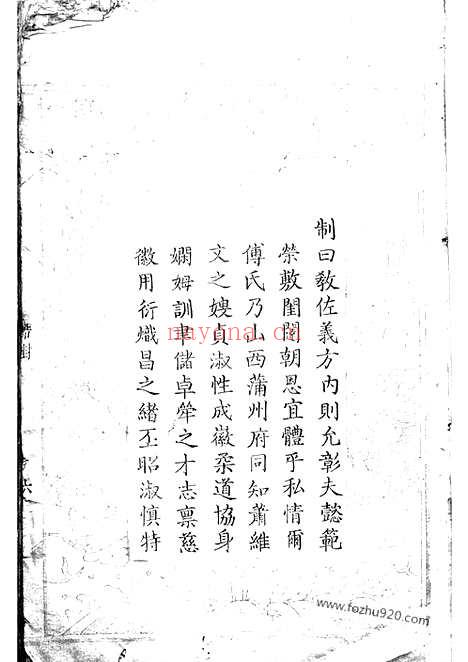 制曰教佐義方內則允彰夫懿範
榮敷閨閫朝恩宜體乎私情爾
傅氏乃山西蒲州府同知蕭維
文之嫂貞淑性成徽柔道協身
嫻姆訓聿儲卓犖之才志稟慈
徽用衍熾昌之緒丕昭淑慎特
nayona.cn
www.fozhu920.com